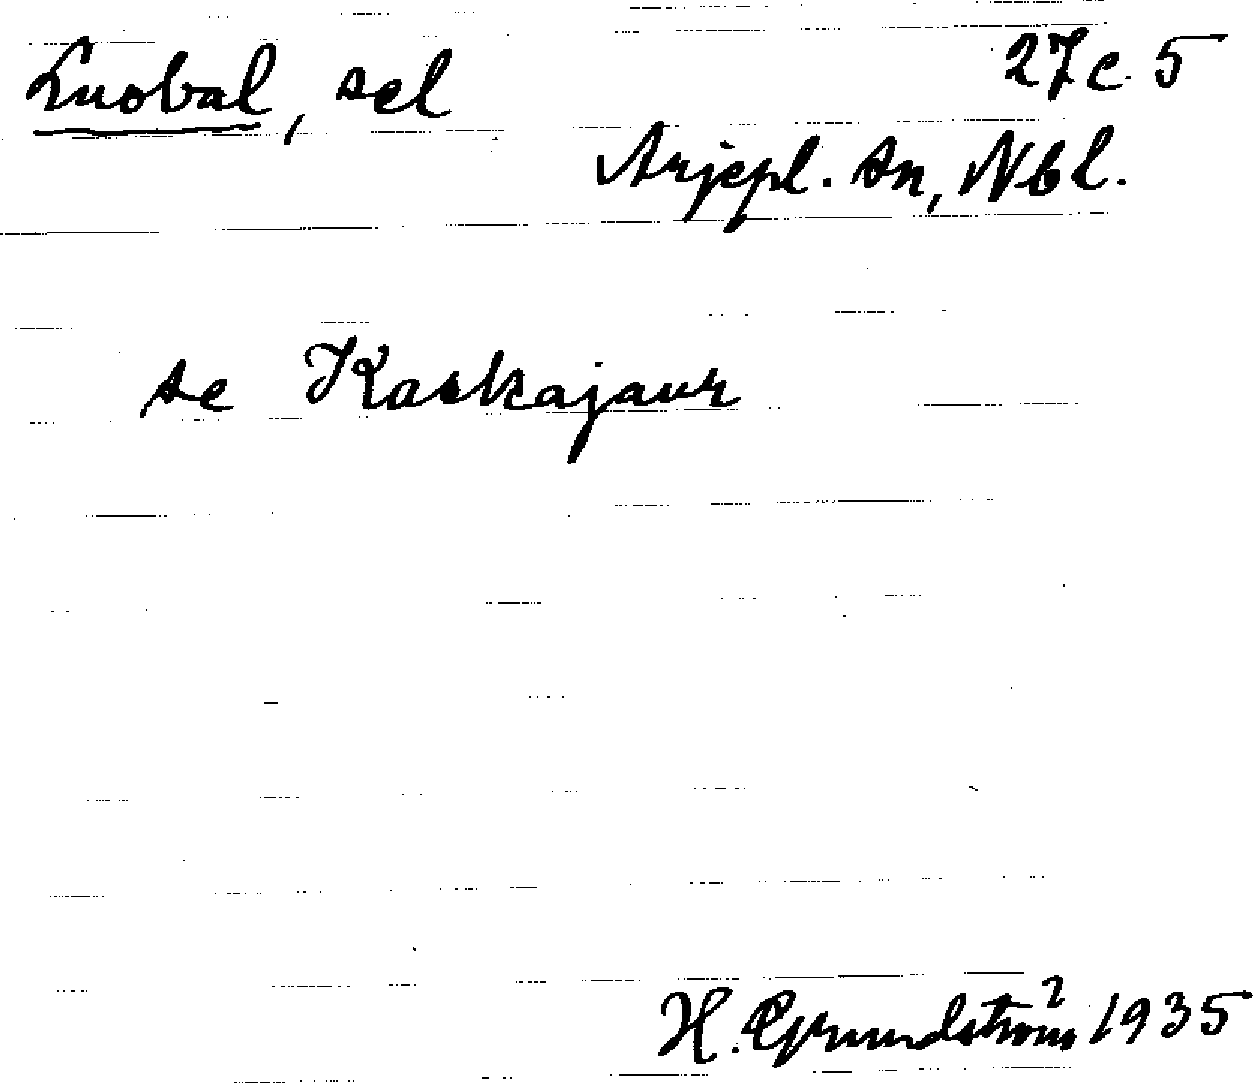 Luobal, sel 27c 5
Arjepl. sn, Nbl.
se Kaskajaur
H. Grundström 1935